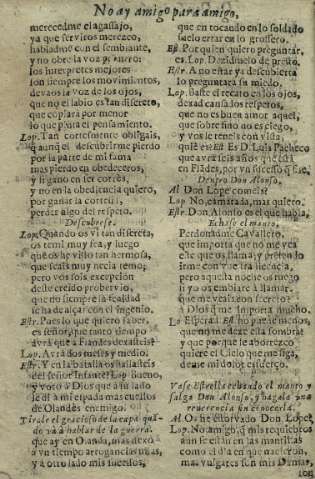 No ay amigo para amigo,
merecedme el agassajo,
ya que serviros merezco,
habladme con el semblante,
y no obre la voz primero:
los interpretes mejores
son siempre los movimientos,
devaos la voz de los ojos,
que no el labio es tan discreto,
que copiará por menor
lo que pinta el pensamiento.
Lop. Tan cortesmente obligais,
q̃ aunq̃ el descubrirme pierdo
por la parte de mi fama
mas pierdo en obedeceros,
y si gano en ser cortés,
y no en la obediencia quiero,
por ganar la cortesia,
perder algo del respeto.
Descubrese.
Lop. Quando os vi tan discreta,
os temi muy fea, y luego
que os he visto tan hermosa,
que seais muy necia temo;
pero vos sois excepcion
deste credito
que no siempre la fealdad
se ha de alçar con el ingenio.
Estr. Pues lo que quiero saber,
es señor, que tanto tiempo
avrá que a Flandes dexasteis?
Lop. Avrá dos meses y medio.
Estr. Y en la batalla os hallasteis
del señor Infante? Lop. Bueno,
y voto a Dios que a su lado
le di a mi espada mas cuellos
de Olandès enemigo.
Tirale el gracioso de la capa quando
va à hablar de la guerra.
que ay en Olanda, mas dexo
a un tiempo arrogancias mias,
y a otro lado mis sucessos,
que en tocando en lo soldado
suelo errar en lo grossero.
Es. Por quien quiero preguntar,
es. Lop. Dezidmelo de presto.
Estr. A no estar ya descubierta
lo preguntara sin miedo.
Lop. Baste el recato en los ojos,
dexad cansados respetos,
que no es buen amor aquel,
que sobre fino no es ciego,
y vos le teneis con vista,
quiè es? Es. Es D. Luis Pacheco
que avrà seis años que està
en Flandes, por un sucesso q̃ fue.
Dentro Don Alonso.
Al. Don Lope comeis?
Lop. No, camarada, mas quiero.
Estr. Don Alonso es el que habla,
Echase el manto,
Perdonadme Cavallero,
que importa que no me vea
este que os llama, y prefiero
irme con vuestra licencia,
pero aquesta noche os ruego
si yo os embiare à llamar,
que me veais con secreto?
à Dios que me importa mucho.
Lo. Esperad. Es. no puedo menos,
que no me deze ella sombras,
y que porque le aborrezco,
quiere el Cielo que me siga,
deme mi dolor esfuerço.
Vase Estrella echando el manto, y
salga Don Alonso, y hagala una
reverencia sin conocerla.
Al. Os he estorvado Don Lope?
Lop. No amigo, q̃ mis requiebros
aun se estàn en las mantillas
como el dia en que nacieron,
mas vulgares son mis Damas,